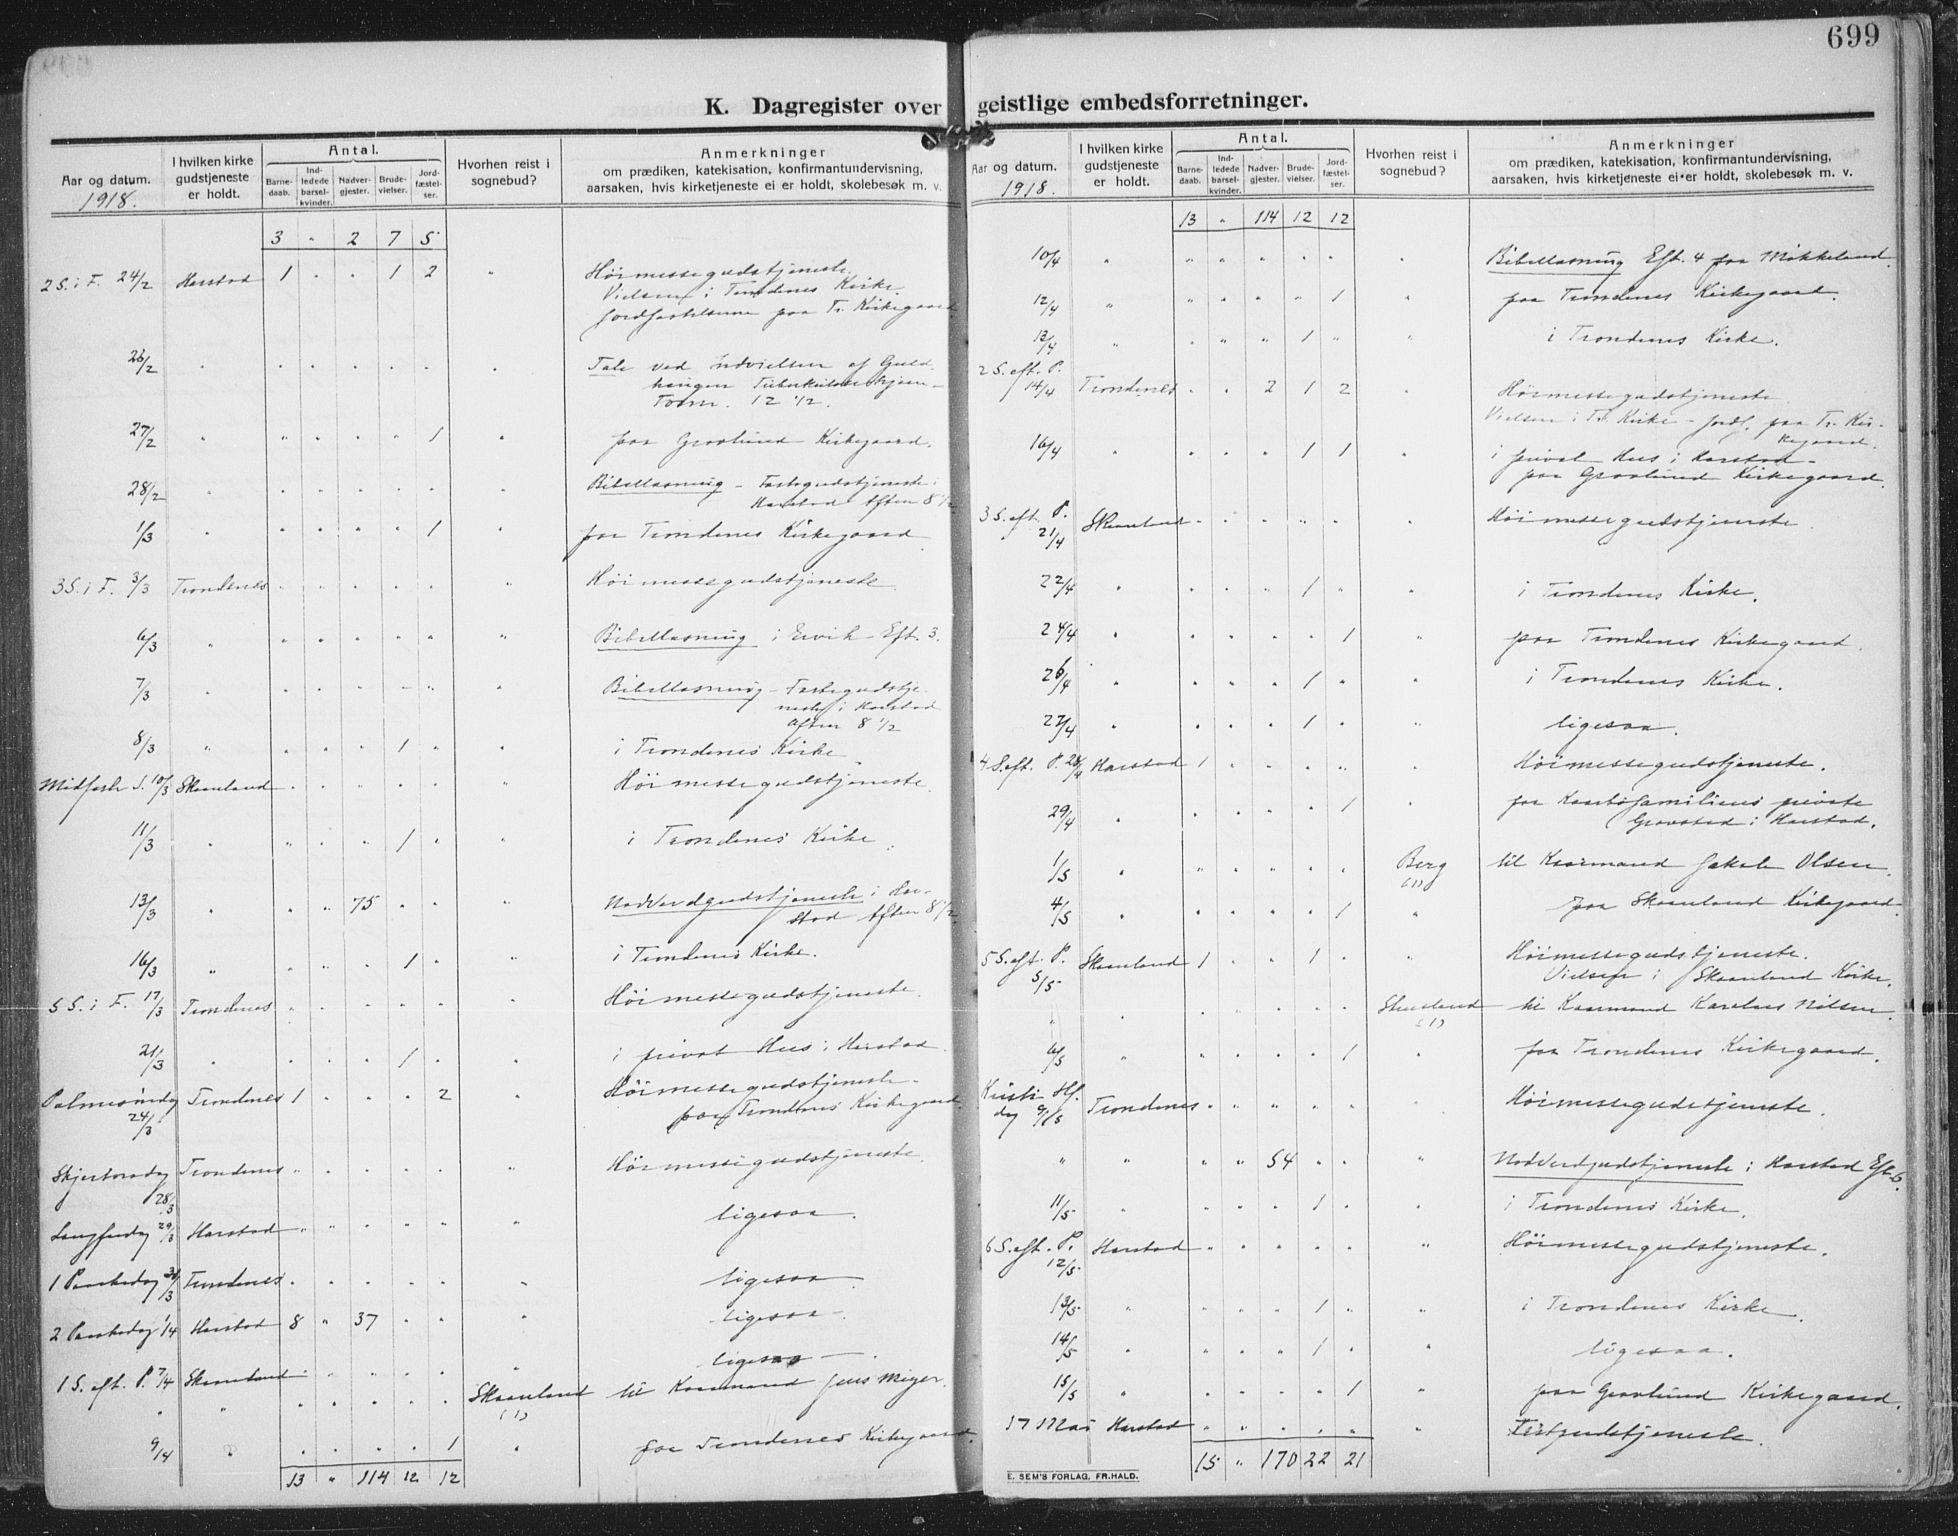 699
K. Dagregister over geistlige embedsforretninger.
Aar og datum. 1918.
I hvilken kirke gudstjeneste er holdt.
Antal.
Barne-daab.
Ind-ledede barsel-kvinder.
Nadver-gjester.
Brude-vielser.
Jord-fæstel-ser.
Hvorhen reist i sognebud?
Anmerkninger
om prædiken, katekisation, konfirmantundervisning,
aarsaken, hvis kirketjeneste ei er holdt, skolebesøk m. v.
3 " 2 7 5
2 S. i F. 24/2 Harstad 1 " " 1 2 " Høimessegudstjeneste.
Vielsen i Trondenes Kirke
Jordfæstelserne paa Tr. Kirkegaard
26/2 Tale ved Indvielsen af Guld-
haugen Tuberkulosehjem
Form. 12 1/2.
27/2 " " " " " 1 " paa Gravlund Kirkegaard.
28/2 " Bibellæsning – Fastegudstjeneste i
Harstad Aften 8 1/2
1/3 " " " " " 1 " paa Trondenes Kirkegaard
3 S. i F. 3/3 Trondenes " Høimessegudstjeneste
6/3 " Bibellæsning i Ervik Eft. 3.
7/3 " Bibellæsning – Fastegudstje-
neste i Harstad
Aften 8 1/2
8/3 " " " " 1 " " i Trondenes Kirke
Midfaste S. 10/3 Skaanland " Høimessegudstjeneste
11/3 " " " " 1 " " i Trondenes Kirke.
13/3 " " " 75 " " " Nadverdgudstjeneste i Har-
stad Aften 8 1/2
16/3 " " " " 1 " " i Trondenes Kirke.
5 S. i F. 17/3 Trondenes " Høimessegudstjeneste.
21/3 " " " " 1 " " i privat Hus i Harstad.
Palmesøndag 24/3 Trondenes 1 " " " 2 Høimessegudstjeneste
paa Trondenes Kirkegaard.
Skjærtorsdag 28/3 Trondenes " Høimessegudstjeneste.
Langfredag 29/3 Harstad " ligesaa.
1 Paaskedag 31/3 Trondenes " ligesaa.
2 Paaskedag 1/4 Harstad 8 " 37 " " " ligesaa
1 S. eft. P. 7/4 Skaanland " ligesaa
" " Skaanland (1) til Kaarmand Jens Meyer.
9/4 " " " " " 1 " paa Trondenes Kirkegaard.
13 " 114 12 12
Aar og datum. 1918.
I hvilken kirke gudstjeneste er holdt.
Antal.
Barne-daab.
Ind-ledede barsel-kvinder.
Nadver-gjester.
Brude-vielser.
Jord-fæstel-ser.
Hvorhen reist i sognebud?
Anmerkninger
om prædiken, katekisation, konfirmantundervisning,
aarsaken, hvis kirketjeneste ei er holdt, skolebesøk m. v.
13 " 114 12 12
10/4 " Bibellæsning Eft. 4 paa Møkkeland.
12/4 " " " " " 1 " paa Trondenes Kirkegaard.
13/4 " " " " 1 " " i Trondenes Kirke.
2 S. eft. P. 14/4 Trondenes " " 2 1 2 " Høimessegudstjeneste
Vielsen i Tr. Kirke – Jordf. paa Tr. Kir-
kegaard.
16/4 " " " " 1 1 " i privat Hus i Harstad –
paa Gravlund Kirkegaard.
3 S. eft. P. 21/4 Skaanland " Høimessegudstjeneste
22/4 " " " " 1 " " i Trondenes Kirke.
24/4 " " " " " 1 " paa Trondenes Kirkegaard.
26/4 " " " " 1 " " i Trondenes Kirke.
27/4 " " " " 1 " " ligesaa.
4 S. eft. P. 28/4 Harstad 1 " " " " " Høimessegudstjeneste.
29/4 " " " " " 1 " paa Kaarbøfamiliens private
Gravsted i Harstad.
1/5 " " " " " " Berg (1) til Kaarmand Jakob Olsen.
4/5 " " " " " 1 " paa Skaanland Kirkegaard.
5 S. eft. P. 5/5 Skaanland 1 " " 1 " " Høimessegudstjeneste.
Vielsen i Skaanland Kirke.
" " Skaanland (1) til Kaarmand Karelius Nilsen.
6/5 " " " " " 1 " paa Trondenes Kirkegaard.
Kristi Hf. dag 9/5 Trondenes " Høimessegudstjeneste.
" " " " 54 " " " Nadverdgudstjeneste i Harstad Eft. 6.
11/5 " " " " 1 " " i Trondenes Kirke.
6 S. eft. P. 12/5 Harstad " Høimessegudstjeneste.
13/5 " " " " 1 " " i Trondenes Kirke.
14/5 " " " " 1 " " ligesaa.
15/5 " " " " " 1 " paa Gravlund Kirkegaard.
17 Mai Harstad " Festgudstjeneste.
15 " 170 22 21
E. SEM'S FORLAG, FR.HALD.